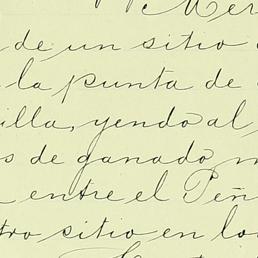 Mer
de un sitio
la punta de
illa, yendo al
s de ganado m
entre el Peñ
tro sitio en lo